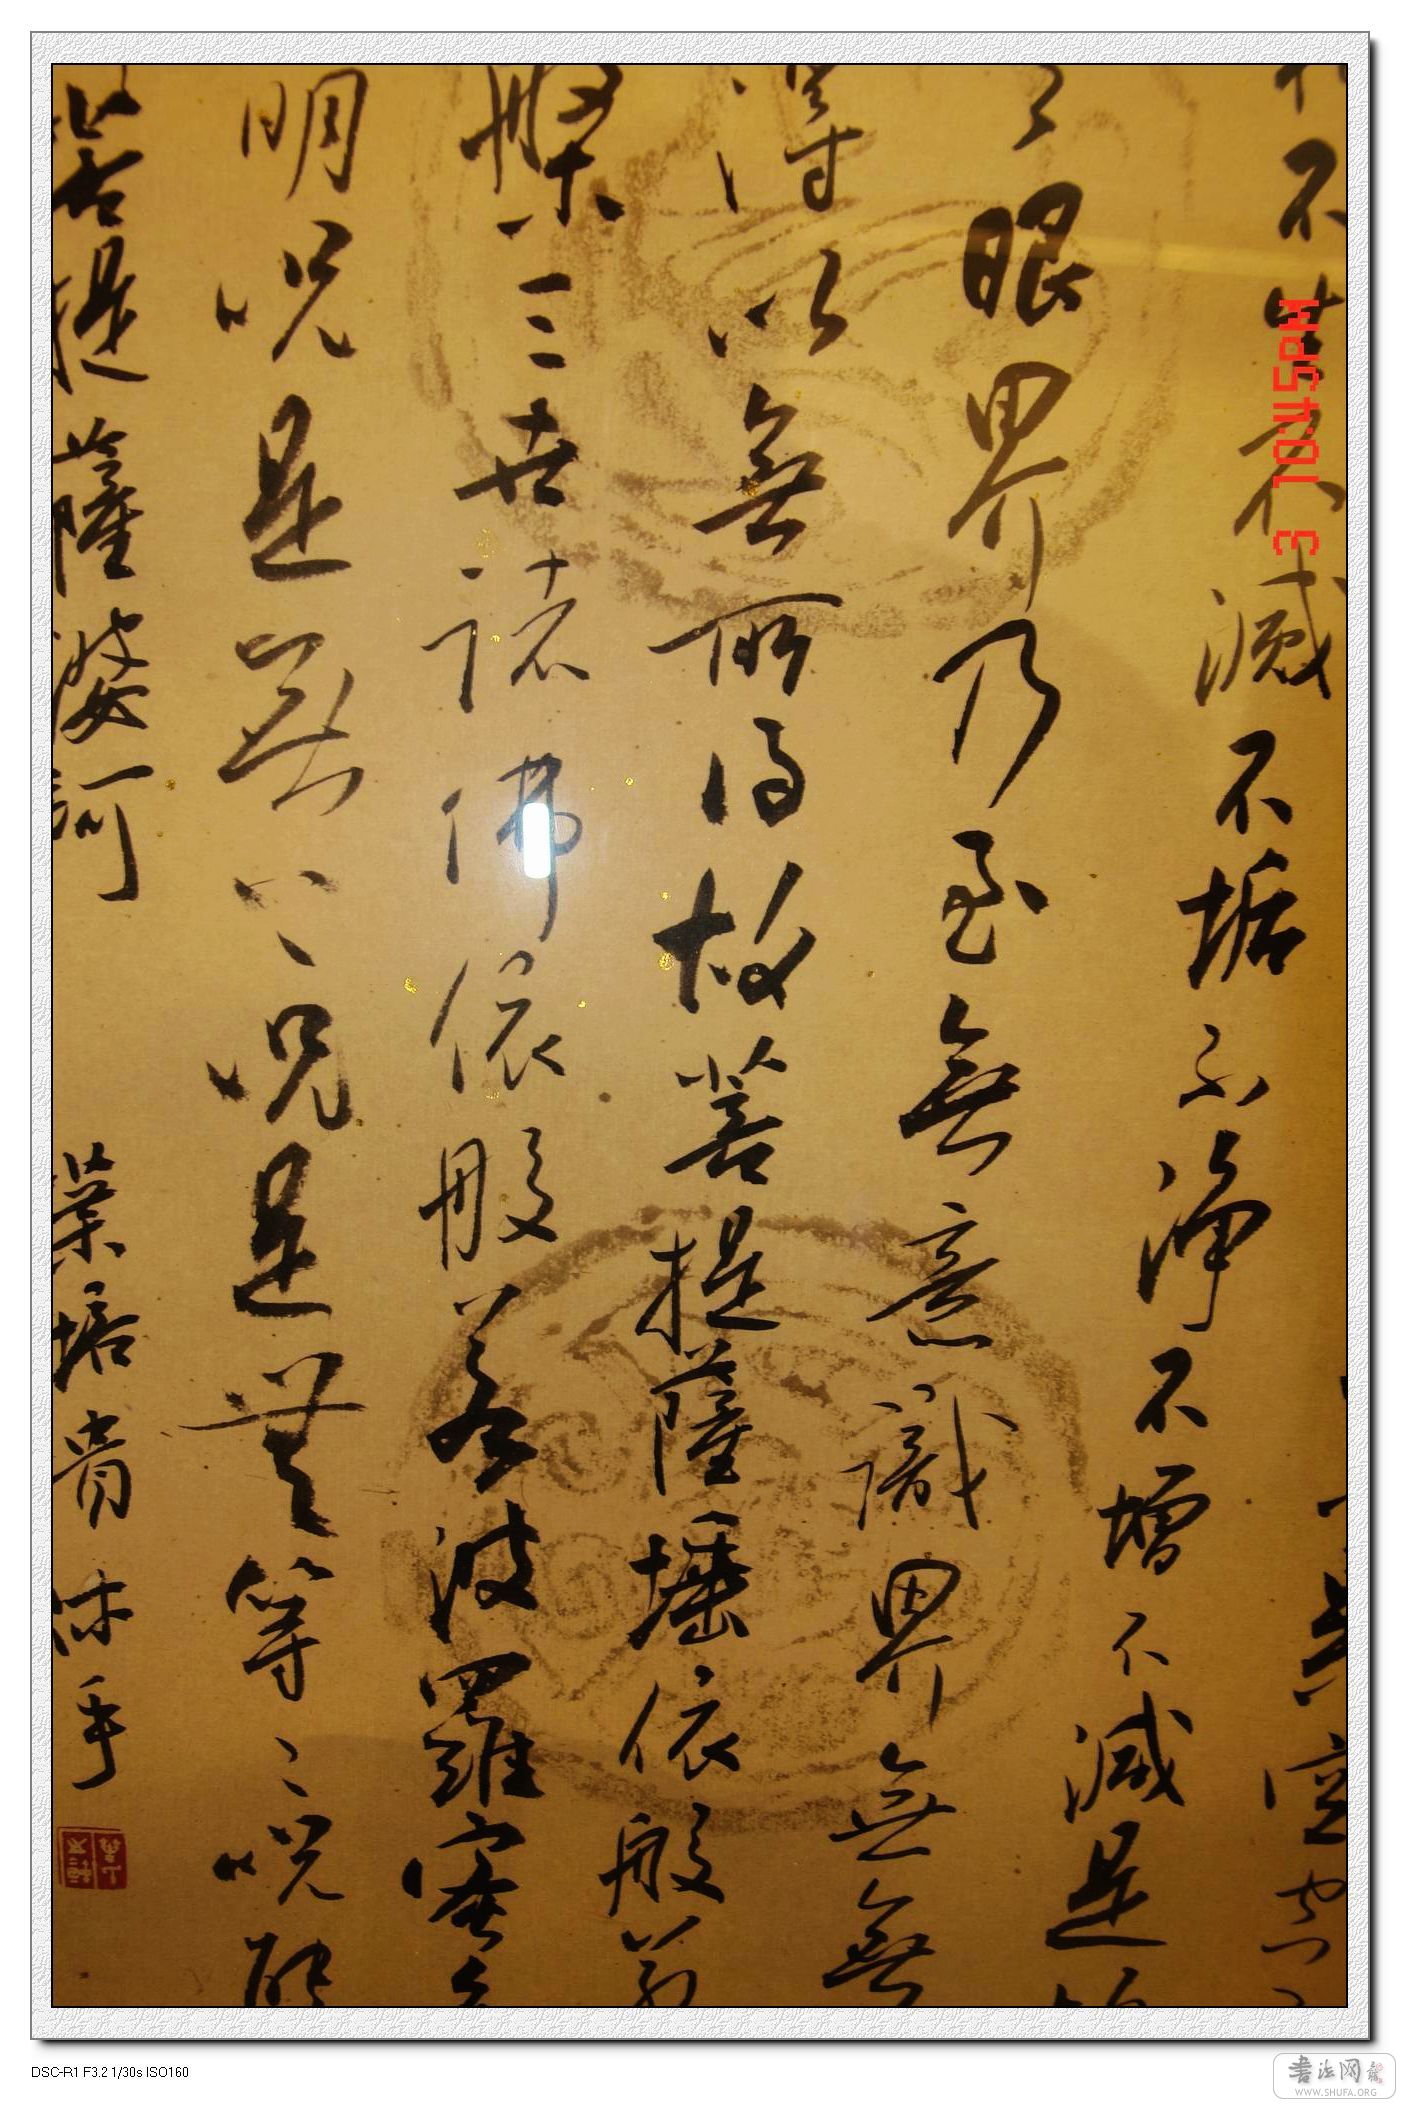 不生不滅不垢不淨不增不減是
眼界乃至無意識界無無
得以無所得故菩提薩埵依般若
槃三世諸佛依般若波羅蜜多
明咒是無上咒是無等等咒能
菩提薩婆訶
葉培貴沐手
3 10:45PM
DSC-R1 F3.2 1/30s ISO160
書法网
WWW.SHUFA.ORG